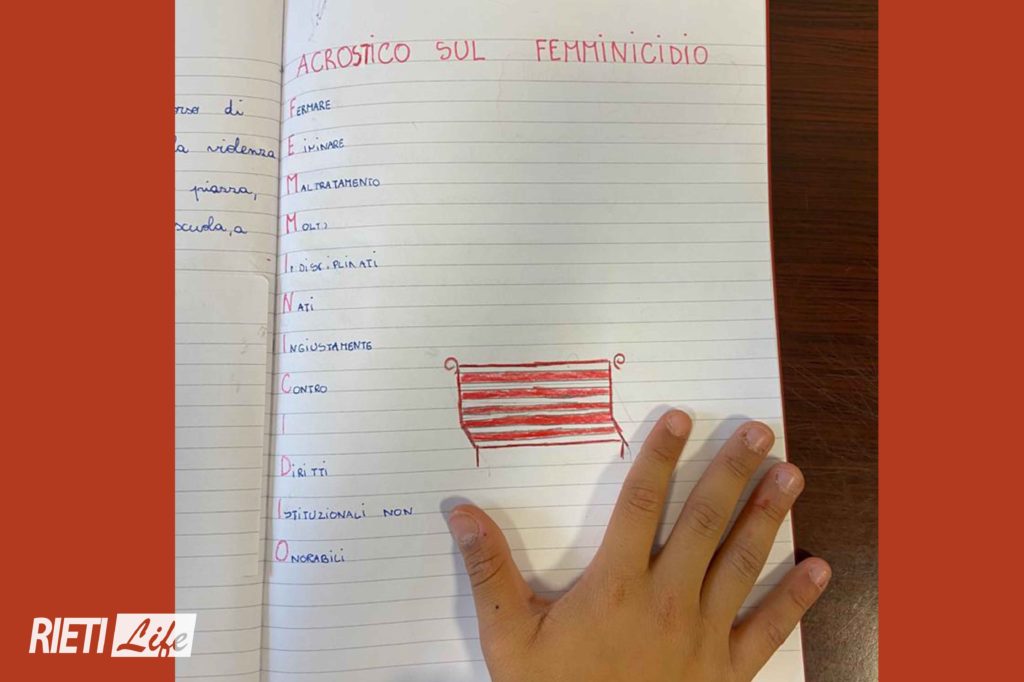 orso di
la violenza
piazza,
scuola, a
ACROSTICO SUL FEMMINICIDIO
FERMARE
EIMINARE
MALTRATAMENTO
MOLTI
INDISCIPLINATI
NATI
INGIUSTAMENTE
CONTRO
I
DIRITTI
ISTITUZIONALI NON
ONORABILI
RIETI Life